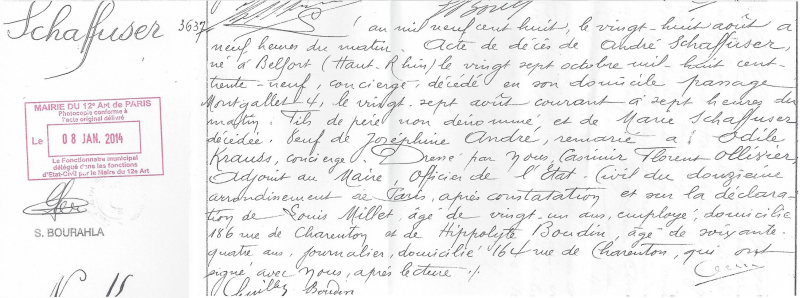 Schaffuser
3637
MAIRIE DU 12e Art de PARIS
Photocopie conforme à
l'acte original délivré
Le 08 JAN. 2014
Le Fonctionnaire municipal
délégué dans les fonctions
d'Etat-Civil par le Maire du 12e Art
S. BOURAHLA
an mil neuf cent huit, le vingt-huit août a
neuf heures du matin. Acte de décès de André Schaffuser,
né à Belfort (Haut-Rhin) le vingt sept octobre mil-huit cent-
trente-neuf, concierge, décédé en son domicile passage
Montgallet 4, le vingt-sept août courant à sept heures du
matin. Fils de père non dénommé et de Marie Schaffuser
décédée. Veuf de Joséphine André, remarié a Odile
Krauss, concierge. Dressé par Nous, Casimir Florent Ollivier,
Adjoint au Maire, officier de l'Etat-Civil du douzième
arrondissement de Paris, après constatation et sur la déclara-
tion de Louis Millet, âgé de vingt-un ans, employé, domicilié
186 rue de Charenton et de Hippolyte Boudin, âgé de soixante-
quatre ans, journalier, domicilié 164 rue de Charenton, qui ont
signé avec Nous, après lecture ./.
Boudin